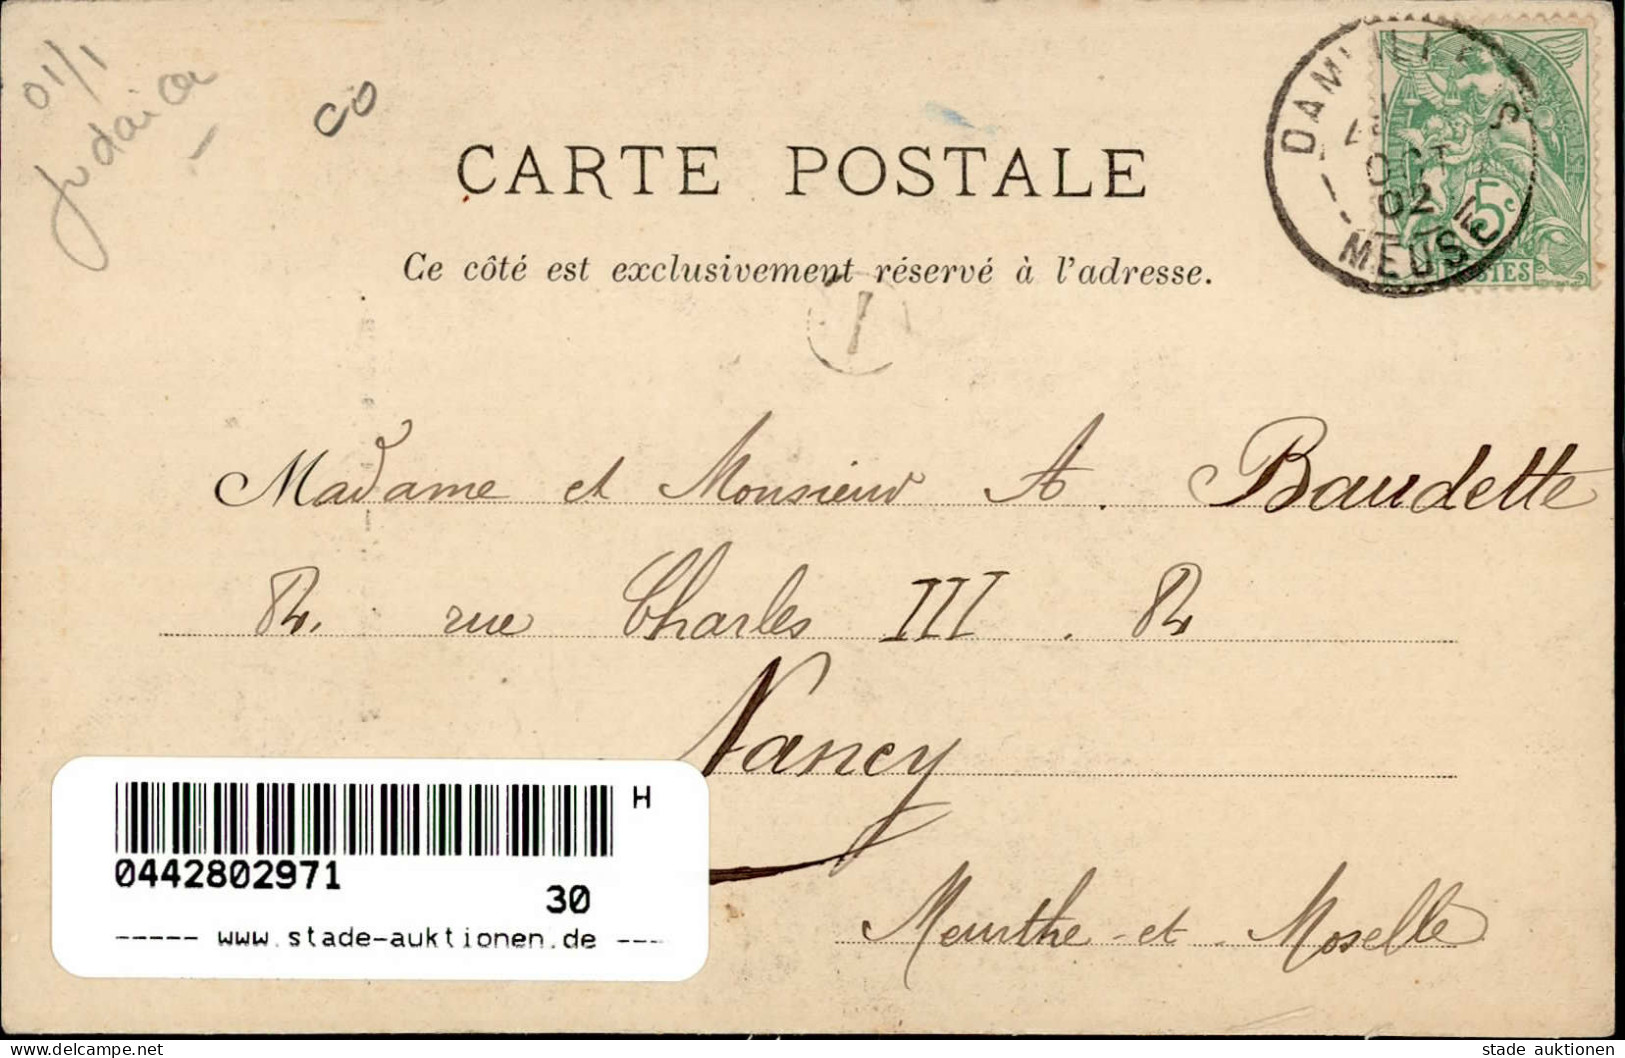 01/1
Judaica
CO
CARTE POSTALE
Ce côté est exclusivement réservé à l'adresse.
OCT
02
MEUSE
5c
POSTES
1
Madame et Monsieur A. Baudette
82, rue Charles III. 82
Nancy
Meurthe-et-Moselle
H
0442802971
30
----- www.stade-auktionen.de ----
delcampe.net
stade auktionen